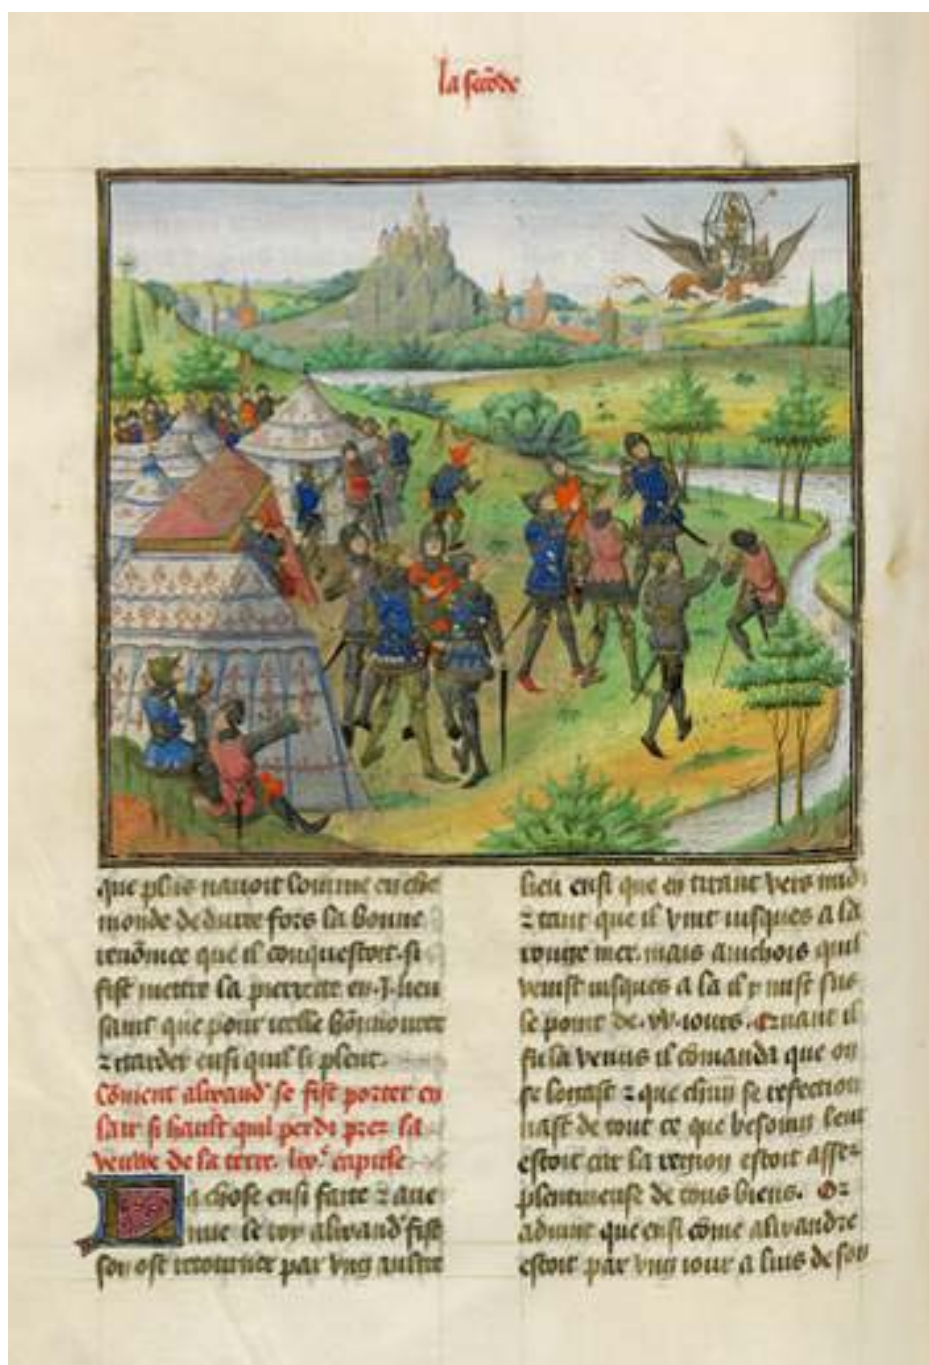 la secōde
que plus nauoit homme en che
monde de duree fors la bonne
renōmee que il conquestoit. si
fist mettre la pierrette en .j. lieu
saint que pour icelle hōnnourer
⁊ garder ensi quil li pleut.
Cōment alixand' se fist porter en
lair si hault quil perdi prez la
veuwe de la terre. liv.ᵉ capitle
La chose ensi faite ⁊ aue
nue le roy alixand' fist
son ost retourner par vng aultre
lieu ensi que en tirant vers midi
⁊ tant que il vint iusques a la
rouge mer. mais anchois quil
venist iusques a la il y mist sus
le point de .xv. iours. Quant il
fu la venus il cōmanda que on
se logast ⁊ que chūn se refection
nast de tout ce que besoing leur
estoit car la region estoit assez
plentiueuse de tous biens. Or
aduint que ensi cōme alixandre
estoit par vng iour a luis de son